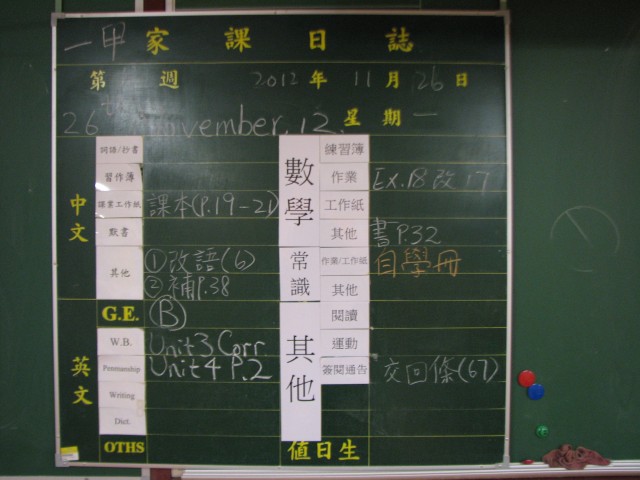 一甲 家課日誌
第 週 2012 年 11 月 26 日
26th November, 12. 星期 一
中文
詞語/抄書
習作簿
課堂工作紙 課本(P.19-21)
默書
其他 ①改語(6)
②補P.38
英文
G.E. B
W.B. Unit 3 Corr.
Penmanship Unit 4 P.2
Writing
Dict.
OTHS
數學
練習簿
作業 Ex.18 改 17
工作紙
其他 書P.32
常識
作業/工作紙 自學冊
其他
其他
閱讀
運動
簽閱通告 交回條(67)
值日生